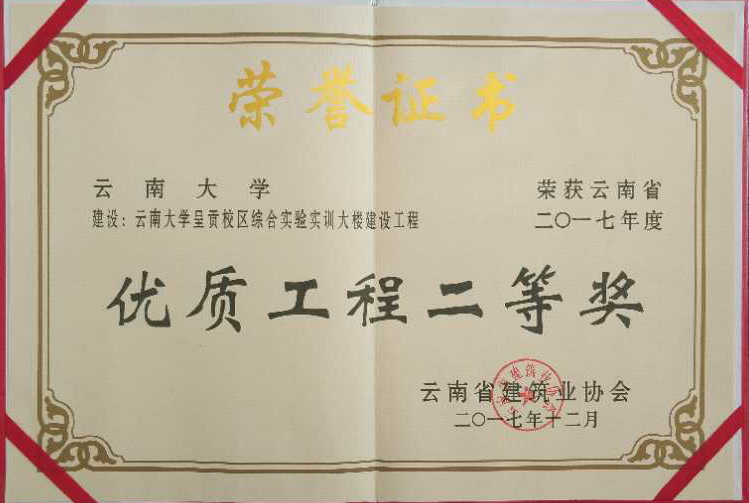 荣誉证书
云南大学
建设：云南大学呈贡校区综合实验实训大楼建设工程
荣获云南省
二〇一七年度
优质工程二等奖
云南省建筑业协会
二〇一七年十二月